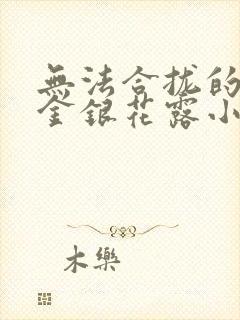 無法合拢的
金銀花露小
木樂